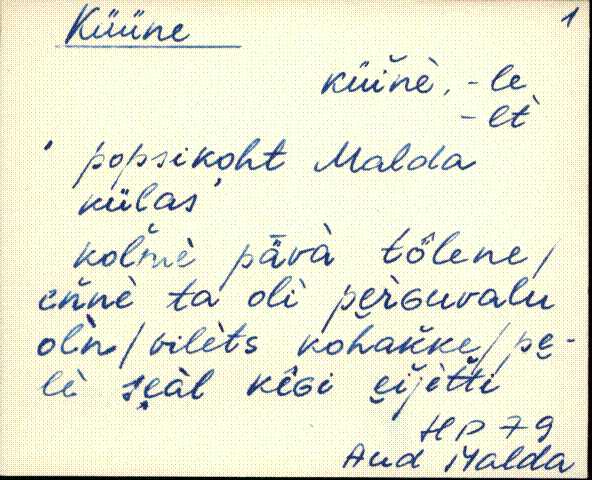 Küüne 1
küinè, -le
-lt̀
' popsikoht Malda
külas'
kolmè pävà tôlene/
ennè ta olì perguvalu
olǹ/vilèts kohakke/pe-
lè seàl kêGi eijètti
HP 79
Aud Malda